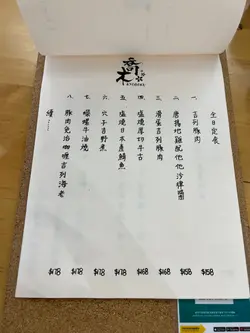 日定食
一、 吉列豚肉 $158
二、 唐揚炸雞配他他沙律醬 $158
三、 滑蛋吉列豚肉 $168
四、 鹽燒厚切牛舌 $168
五、 鹽燒日本產鯖魚 $178
六、 穴子吉野煮 $178
七、 螺牛油燒 $178
八、 豚肉免治咖喱吉列海老 $178
續......